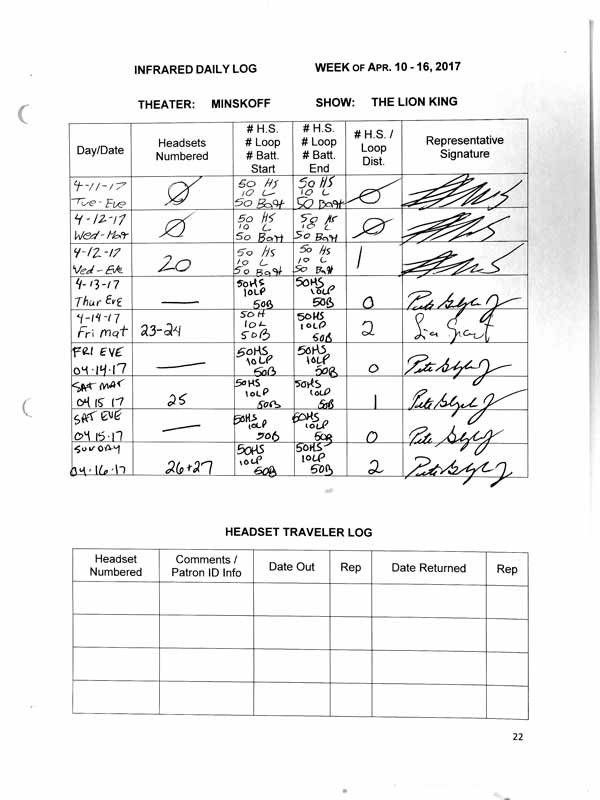 INFRARED DAILY LOG WEEK OF APR. 10 - 16, 2017
THEATER: MINSKOFF SHOW: THE LION KING
Day/Date
Headsets
Numbered
# H.S.
# Loop
# Batt.
Start
# H.S.
# Loop
# Batt.
End
# H.S. /
Loop
Dist.
Representative
Signature
4-11-17
Tue-Eve
Ø
50 HS
10 L
50 Batt
50 HS
10 L
50 Batt
Ø
4-12-17
Wed-Mat
Ø
50 HS
10 L
50 Batt
50 HS
10 L
50 Batt
Ø
4-12-17
Wed-Eve
20
50 HS
10 L
50 Batt
50 HS
10 L
50 Batt
1
4-13-17
Thur Eve
—
50HS
10LP
50B
50HS
10LP
50B
0
Pete
4-14-17
Fri mat
23-24
50H
10L
50B
50HS
10LP
50B
2
FRI EVE
04.14.17
—
50HS
10LP
50B
50HS
10LP
50B
0
Pete
SAT MAT
04 15 17
25
50HS
10LP
50B
50HS
10LP
50B
1
Pete
SAT EVE
04 15.17
—
50HS
10LP
50B
50HS
10LP
50B
0
Pete
SUNDAY
04.16.17
26+27
50HS
10LP
50B
50HS
10LP
50B
2
Pete
HEADSET TRAVELER LOG
Headset
Numbered
Comments /
Patron ID Info
Date Out
Rep
Date Returned
Rep
22